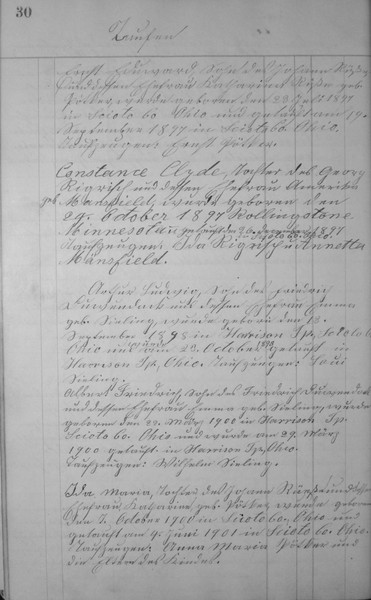 30
Taufen
Ernst Eduward, Sohn des Johann
und dessen Ehefrau Katharina geb
wurde geboren den 23 1897
in Scioto Co Ohio und getauft am 19
September 1897 in Scioto Co. Ohio.
Taufzeugen: Ernst
Constance Clyde, Tochter des Georg
und dessen Ehefrau
geb. Mansfield, wurde geboren den
29. October 1897 Rollingstone
Minnesota getauft den 26. 1897
Scioto Co. Ohio.
Taufzeugen: Ida u Annetta
Mansfield.
Arthur Ludwig, Sohn des Friedrich
und dessen Ehefrau Emma
geb. Sieling, wurde geboren den 12.
September 1898 in Harrison Tp. Scioto Co
Ohio und am 23. October 1898 getauft in
Harrison Tp. Ohio. Taufzeugen:
Sieling.
Albert Friedrich Sohn des Friedrich
und dessen Ehefrau Emma geb. Sieling, wurde
geboren den 22. März 1900 in Harrison Tp.
Scioto Co. Ohio und wurde am 29. März
1900 getauft in Harrison Tp. Ohio.
Taufzeugen: Wilhelm Sieling.
Ida Maria, Tochter des Johann und dessen
Ehefrau Katharina geb. wurde geboren
den 7. October 1900 in Scioto Co, Ohio und
getauft am 9. Juni 1901 in Scioto Co. Ohio.
Taufzeugen: Anna Maria und
die Eltern des Kindes.